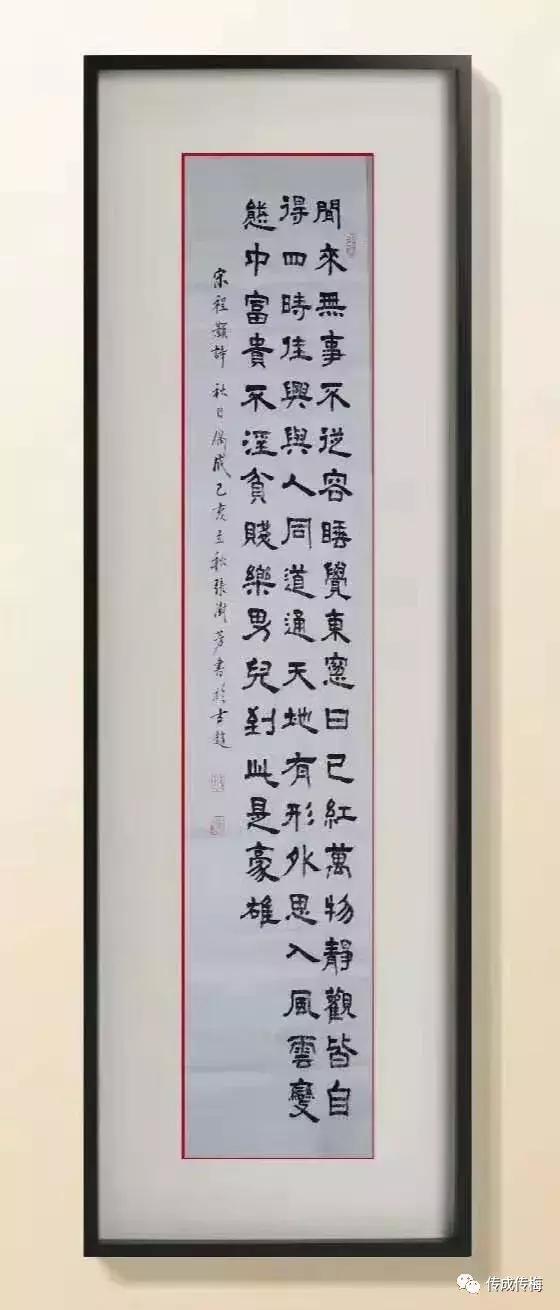 閒來無事不從容睡覺東窗日已紅萬物靜觀皆自
得四時佳興與人同道通天地有形外思入風雲變
態中富貴不淫貧賤樂男兒到此是豪雄
宋程顥詩 秋日偶成己亥立秋張芳書於古趙
传成传梅